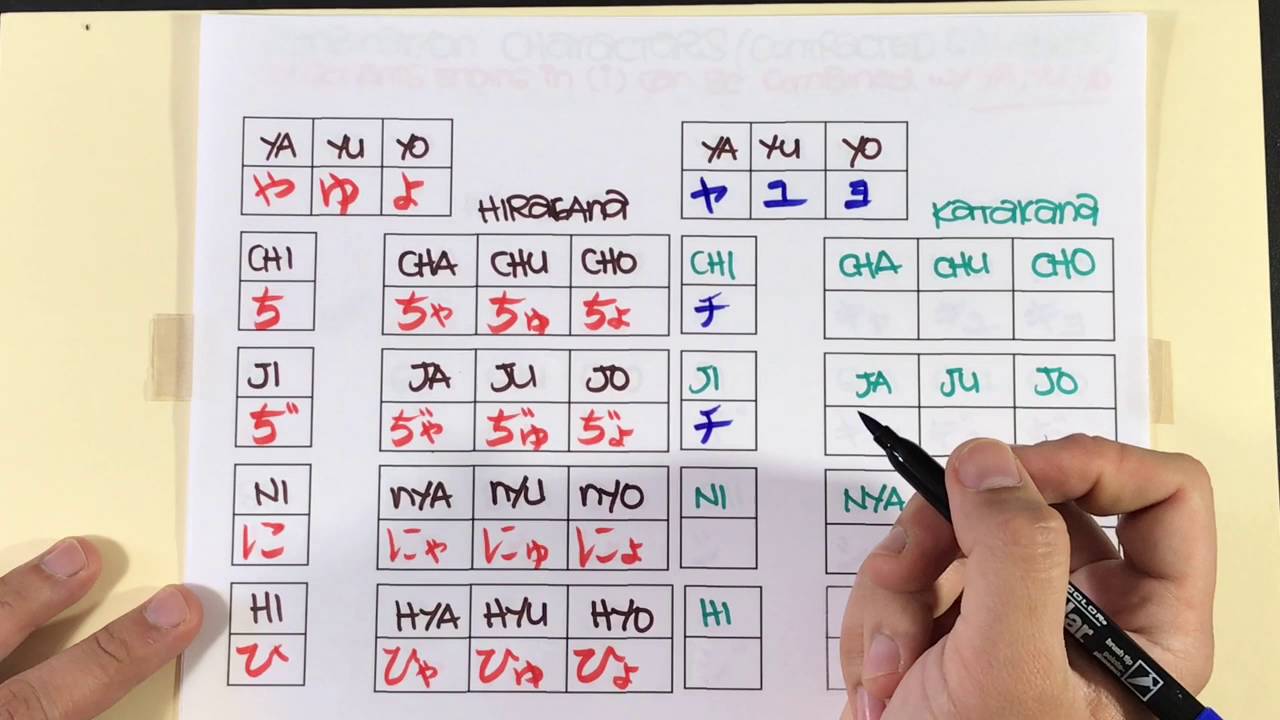 YA YU YO
や ゆ よ
HIRAGANA
YA YU YO
ヤ ユ ヨ
KATAKANA
CHI
ち
CHA CHU CHO
ちゃ ちゅ ちょ
CHI
チ
CHA CHU CHO
JI
ぢ
JA JU JO
ぢゃ ぢゅ ぢょ
JI
チ
JA JU JO
NI
に
NYA NYU NYO
にゃ にゅ にょ
NI
NYA
HI
ひ
HYA HYU HYO
ひゃ ひゅ ひょ
HI
COLOR
brush tip